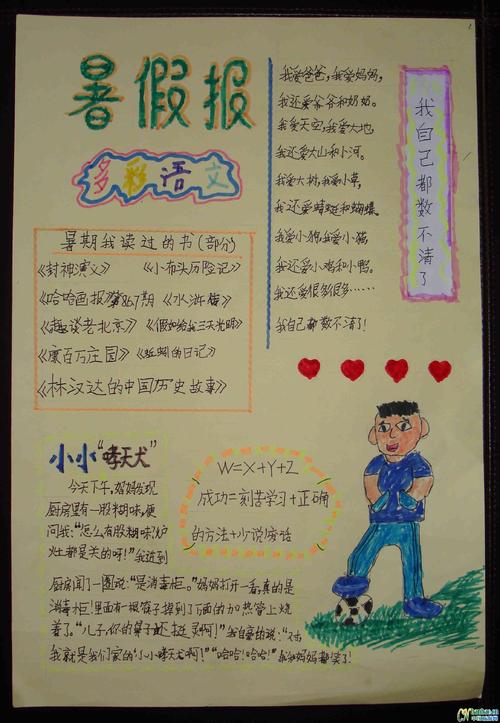 暑假报
多彩语文
暑期我读过的书(部分)
《封神演义》 《小布头历险记》
《哈哈画报》第867期 《水浒传》
《趣谈老北京》 《假如给我三天光明》
《康百万庄园》 《蚯蚓的日记》
《林汉达的中国历史故事》
我爱爸爸,我爱妈妈,
我还爱爷爷和奶奶。
我爱天空,我爱大地,
我还爱大山和小河。
我爱大树,我爱小草,
我还爱蜻蜓和蝴蝶。
我爱小狗,我爱小猫,
我还爱小鸡和小鸭。
我还爱很多很多……
我自己都数不清了!
我自己都数不清了
小小“哮天犬”
今天下午,妈妈发现
厨房里有一股糊味,便
问我:“怎么有股糊味,炉
灶都是关的呀!”我进到
厨房闻了一圈说:“是消毒柜。”妈妈打开一看,真的是
消毒柜!里面有根筷子掉到了下面的加热管上烧
着了。“儿子,你的鼻子还挺灵啊!”我自豪的说:
我就是我们家的‘小小哮天犬’啊!”“哈哈!哈哈!”我和妈妈都笑了!
W=X+Y+Z
成功=刻苦学习+正确
的方法+少说废话